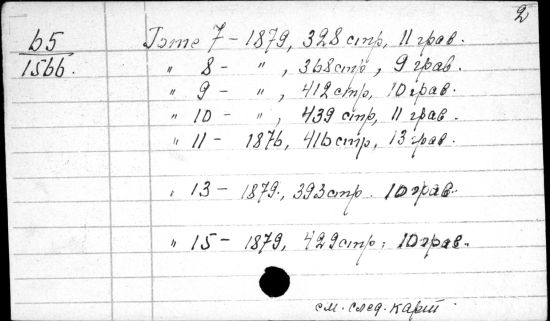 2
65
1566.
Томе 7 - 1879, 328 стр, 11 грав.
" 8 - ", 368 стр, 9 грав.
" 9 - ", 412 стр, 10 грав.
" 10 - ", 439 стр, 11 грав.
" 11 - 1876, 416 стр, 13 грав.
" 13 - 1879, 393 стр. 10 грав.
" 15 - 1879, 429 стр; 10 грав.
см. след. карт